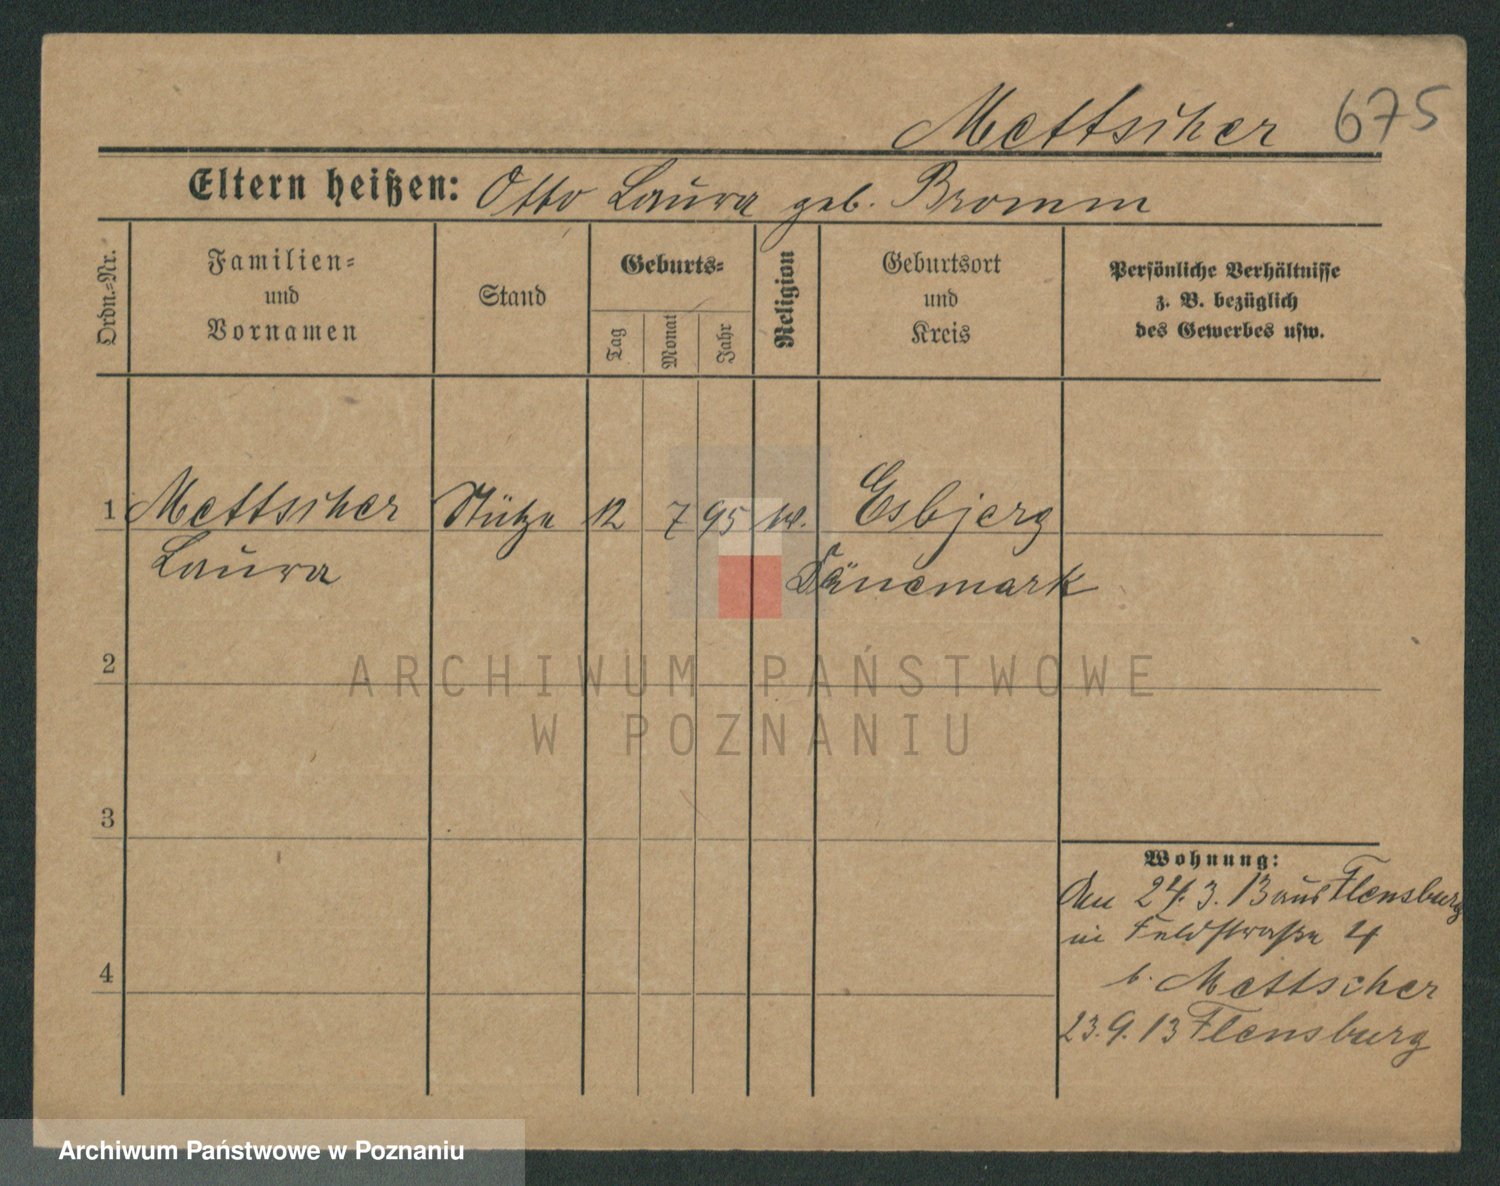 Mettscher 675
Eltern heißen: Otto Laura geb. Bromm
Ordn.-Nr.
Familien-
und
Vornamen
Stand
Geburts-
Tag
Monat
Jahr
Religion
Geburtsort
und
Kreis
Persönliche Verhältnisse
z. B. bezüglich
des Gewerbes usw.
1 Mettscher Stütze 12 7 95 Esbjerg
Laura Dänemark
2
ARCHIWUM PAŃSTWOWE
W POZNANIU
3
4
Wohnung:
24. 3. 13 aus Flensburg
in Feldstraße 4
b. Mettscher
23. 9. 13 Flensburg
Archiwum Państwowe w Poznaniu